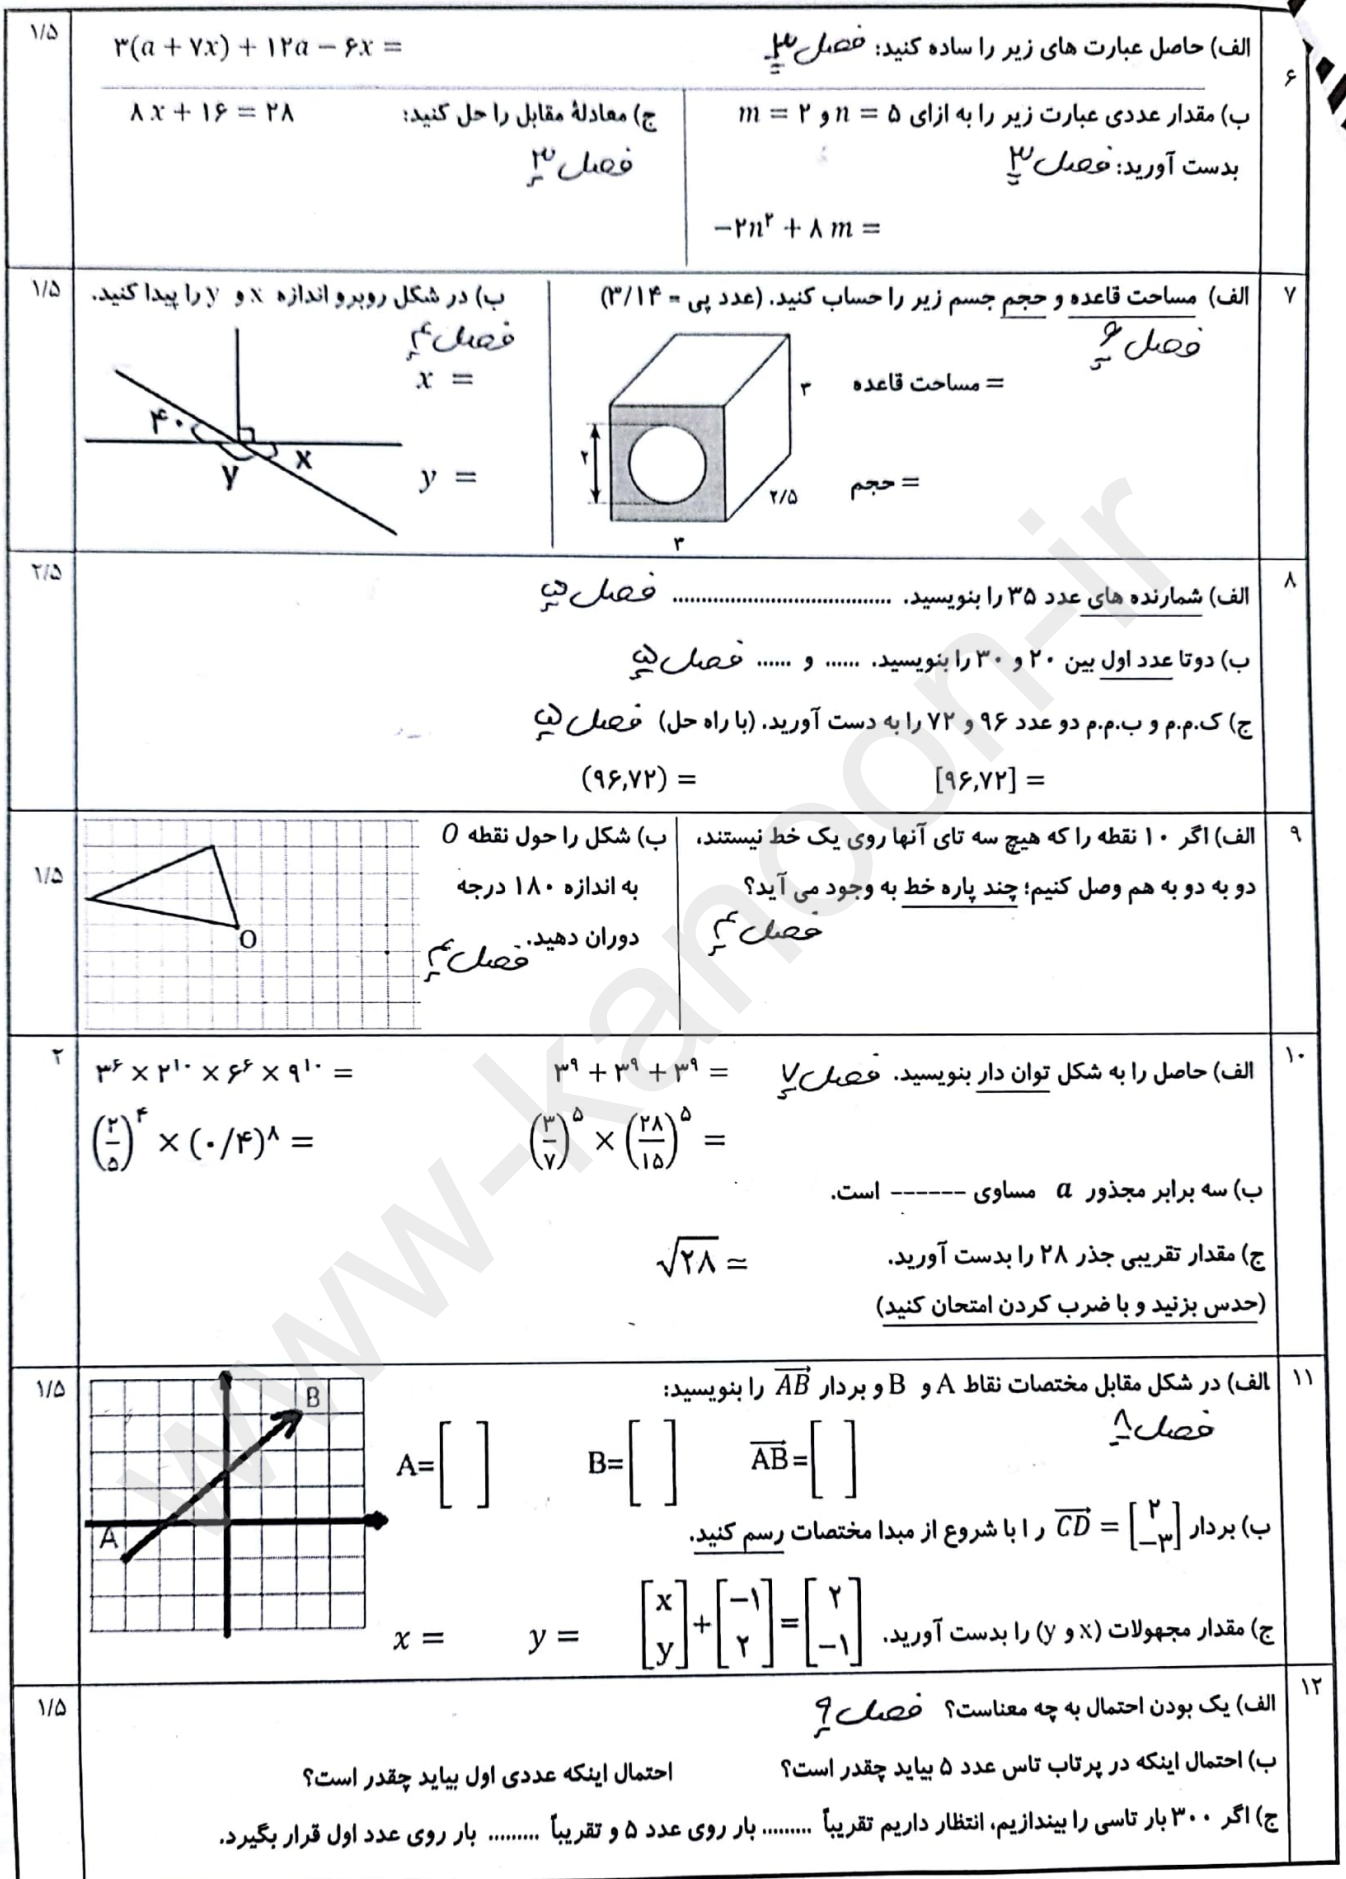 ۱/۵
۶
الف) حاصل عبارت های زیر را ساده کنید: فصل ۳
۳(a + ۷x) + ۱۲a − ۶x =
ب) مقدار عددی عبارت زیر را به ازای n = ۵ و m = ۲
بدست آورید: فصل ۳
−۲n² + ۸ m =
ج) معادلهٔ مقابل را حل کنید:
۸ x + ۱۶ = ۲۸
فصل ۳
۱/۵
۷
الف) مساحت قاعده و حجم جسم زیر را حساب کنید. (عدد پی = ۳/۱۴)
فصل ۶
مساحت قاعده =
حجم =
۳
۲
۲/۵
۳
ب) در شکل روبرو اندازه x و y را پیدا کنید.
فصل ۴
x =
y =
۴۰
y
x
۲/۵
۸
الف) شمارنده های عدد ۳۵ را بنویسید. ...................................... فصل ۵
ب) دوتا عدد اول بین ۲۰ و ۳۰ را بنویسید. ...... و ...... فصل ۵
ج) ک.م.م و ب.م.م دو عدد ۹۶ و ۷۲ را به دست آورید. (با راه حل) فصل ۵
[۹۶,۷۲] =
(۹۶,۷۲) =
۱/۵
۹
الف) اگر ۱۰ نقطه را که هیچ سه تای آنها روی یک خط نیستند،
دو به دو به هم وصل کنیم؛ چند پاره خط به وجود می آید؟
فصل ۴
ب) شکل را حول نقطه O
به اندازه ۱۸۰ درجه
دوران دهید. فصل ۴
O
۲
۱۰
الف) حاصل را به شکل توان دار بنویسید. فصل ۷
۳⁹ + ۳⁹ + ۳⁹ =
۳⁶ × ۲¹⁰ × ۶⁶ × ۹¹⁰ =
(۳/۷)⁵ × (۲۸/۱۵)⁵ =
(۲/۵)⁴ × (۰/۴)⁸ =
ب) سه برابر مجذور a مساوی ------ است.
ج) مقدار تقریبی جذر ۲۸ را بدست آورید.
√۲۸ ≃
(حدس بزنید و با ضرب کردن امتحان کنید)
۱/۵
۱۱
الف) در شکل مقابل مختصات نقاط A و B و بردار AB را بنویسید:
فصل ۸
A=[ ]
B=[ ]
AB=[ ]
A
B
ب) بردار CD = [۲ −۳] را با شروع از مبدا مختصات رسم کنید.
ج) مقدار مجهولات (x و y) را بدست آورید.
[x y] + [−۱ ۲] = [۲ −۱]
y =
x =
۱/۵
۱۲
الف) یک بودن احتمال به چه معناست؟ فصل ۹
ب) احتمال اینکه در پرتاب تاس عدد ۵ بیاید چقدر است؟ احتمال اینکه عددی اول بیاید چقدر است؟
ج) اگر ۳۰۰ بار تاسی را بیندازیم، انتظار داریم تقریباً ......... بار روی عدد ۵ و تقریباً ......... بار روی عدد اول قرار بگیرد.
www-kanoon-ir